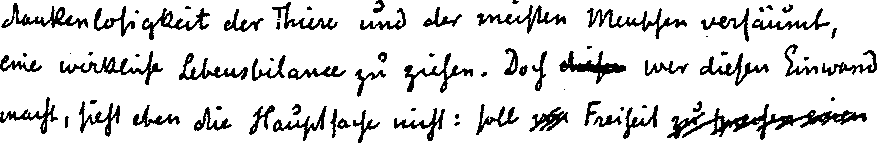 dankenlosigkeit der Thiere und der meisten Menschen versäumt,
eine wirkliche Lebensbilance zu ziehen. Doch wer diesen Einwand
macht, sieht eben die Hauptsache nicht: soll Freiheit